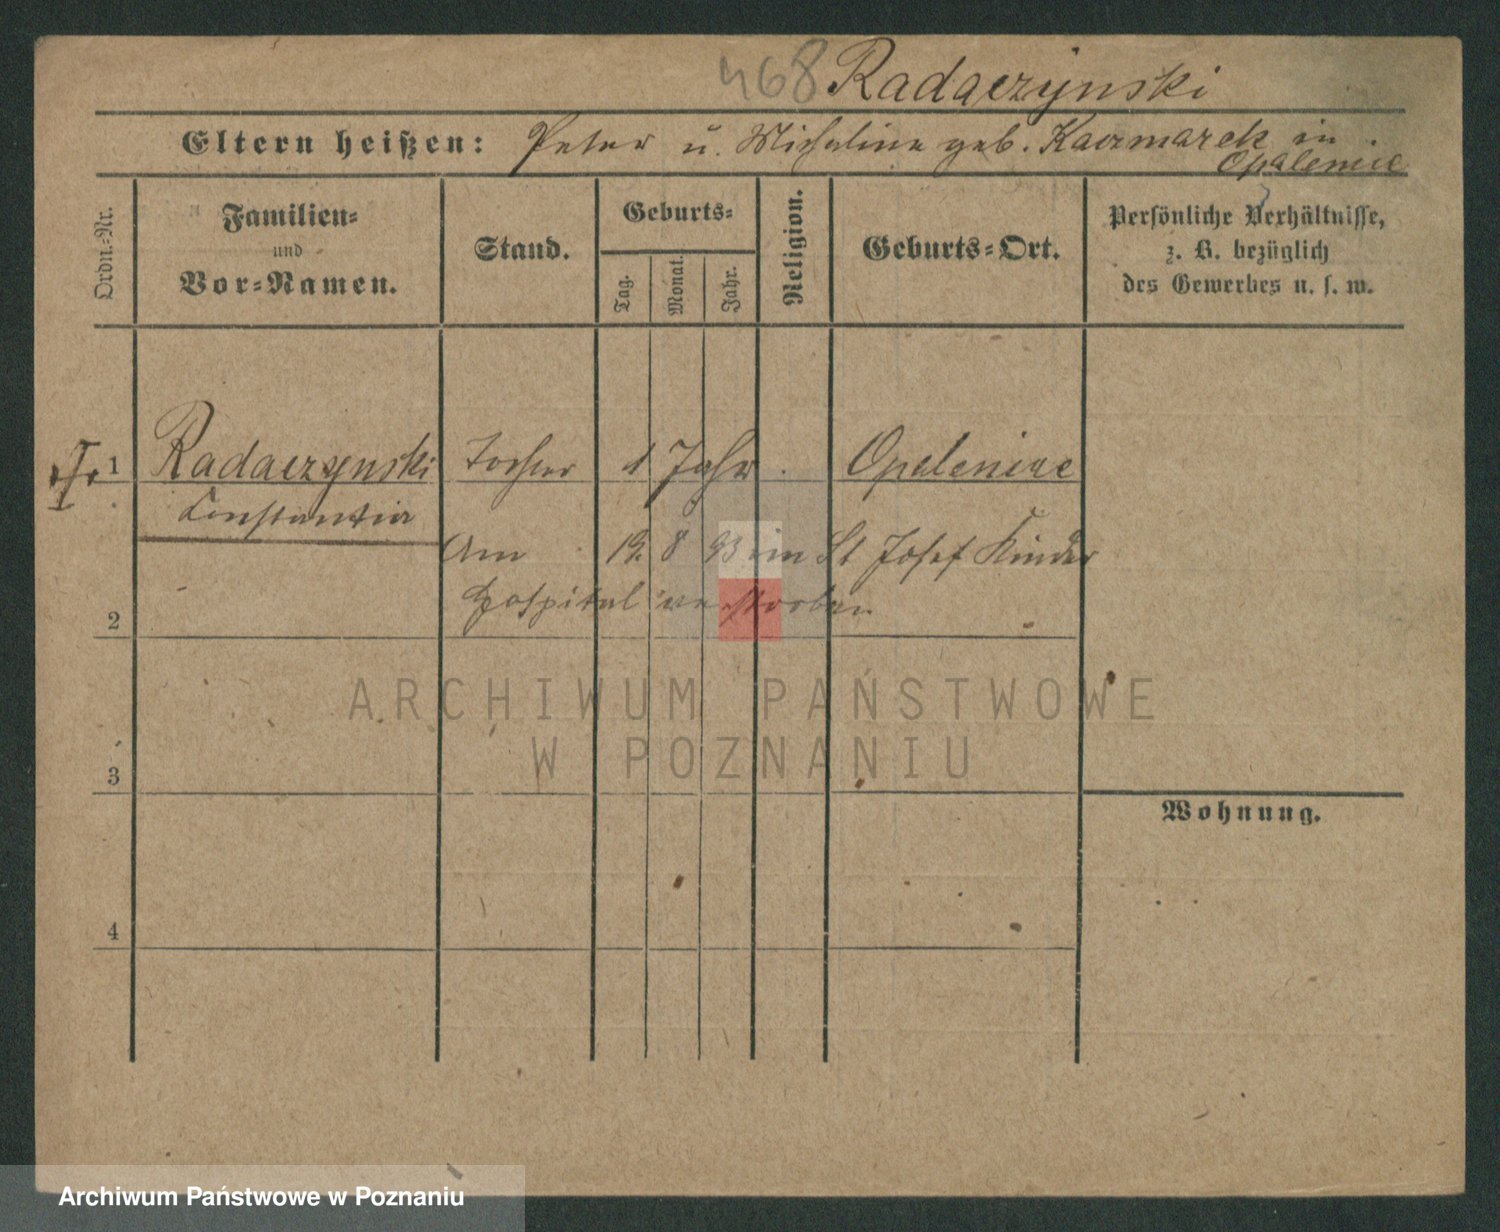 468 Radaczynski
Eltern heißen: Peter u. Micheline geb. Kaczmarek in
Opalenice
Ordn.-Nr.
Familien-
und
Vor-Namen.
Stand.
Geburts-
Tag.
Monat.
Jahr.
Religion.
Geburts-Ort.
Persönliche Verhältnisse,
z. B. bezüglich
des Gewerbes u. s. w.
1 Radaczynski Tochter 1 Jahr. Opalenice
Constantia
Am 19. 8 93 im St Josef Kinder
hospital verstorben
2
ARCHIWUM PAŃSTWOWE
W POZNANIU
3
Wohnung.
4
Archiwum Państwowe w Poznaniu